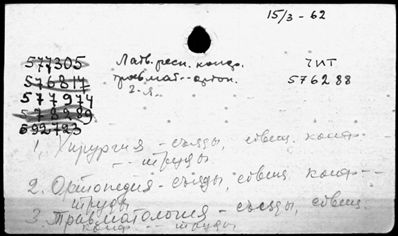 15/3 - 62
577305
Латв. респ. конф.
ЧИТ
576817
травмат.-ортоп.
576288
2-я.
577974
78289
592723
1. Хирургия - съезды, совещ. конф. -
- труды
2. Ортопедия - съезды, совещ. конф. -
- труды
3. Травматология - съезды, совещ.
конф. - труды